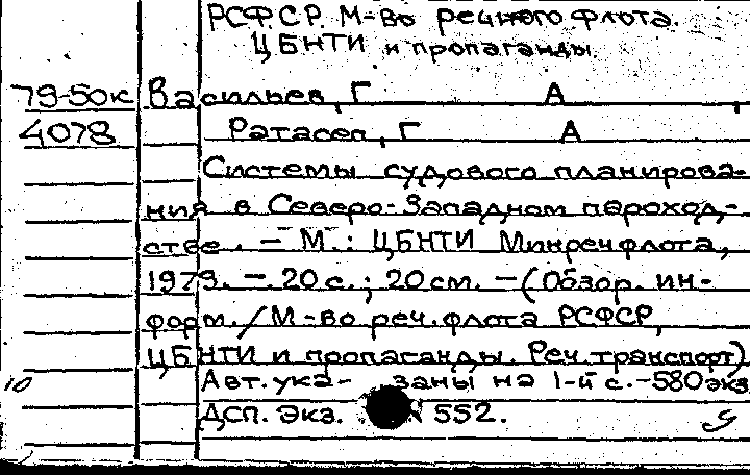 РСФСР М-во речного флота.
ЦБНТИ и пропаганды
79-50к Васильев, Г А
4078 Ратасеп, Г А
Системы судового планирова-
ния в Северо-Западном пароход-
стве. — М.: ЦБНТИ Минречфлота,
1979. — 20 с.; 20 см. — (Обзор. ин-
форм. / М-во реч. флота РСФСР,
ЦБНТИ и пропаганды. Реч. транспорт)
10 Авт. ука- заны на 1-й с. — 580 экз
ДСП. Экз. N 552.